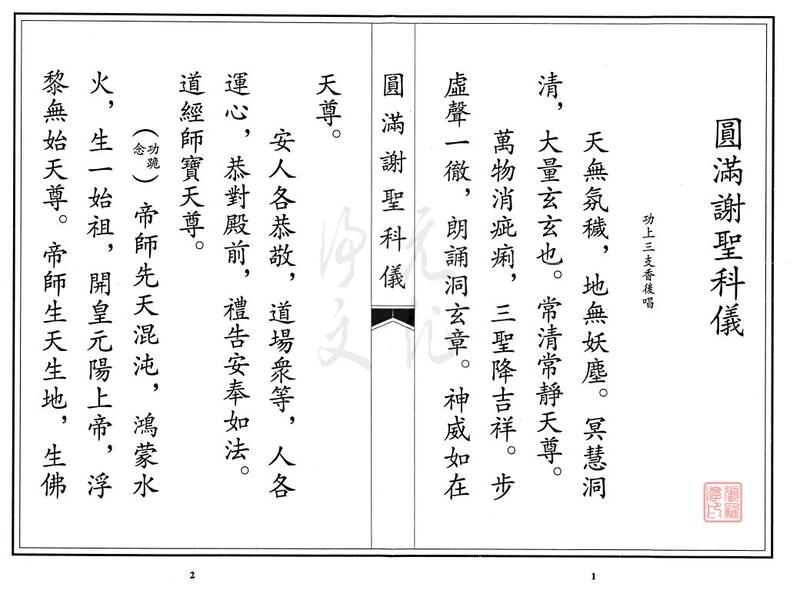 圓滿謝聖科儀
功上三支香後唱
天無氛穢，地無妖塵。冥慧洞
清，大量玄玄也。常清常靜天尊。
萬物消疵痢，三聖降吉祥。步
虛聲一徹，朗誦洞玄章。神威如在
1
圓滿謝聖科儀
天尊。
安人各恭敬，道場眾等，人各
運心，恭對殿前，禮告安奉如法。
道經師寶天尊。
（功跪念）帝師先天混沌，鴻蒙水
火，生一始祖，開皇元陽上帝，浮
黎無始天尊。帝師生天生地，生佛
2